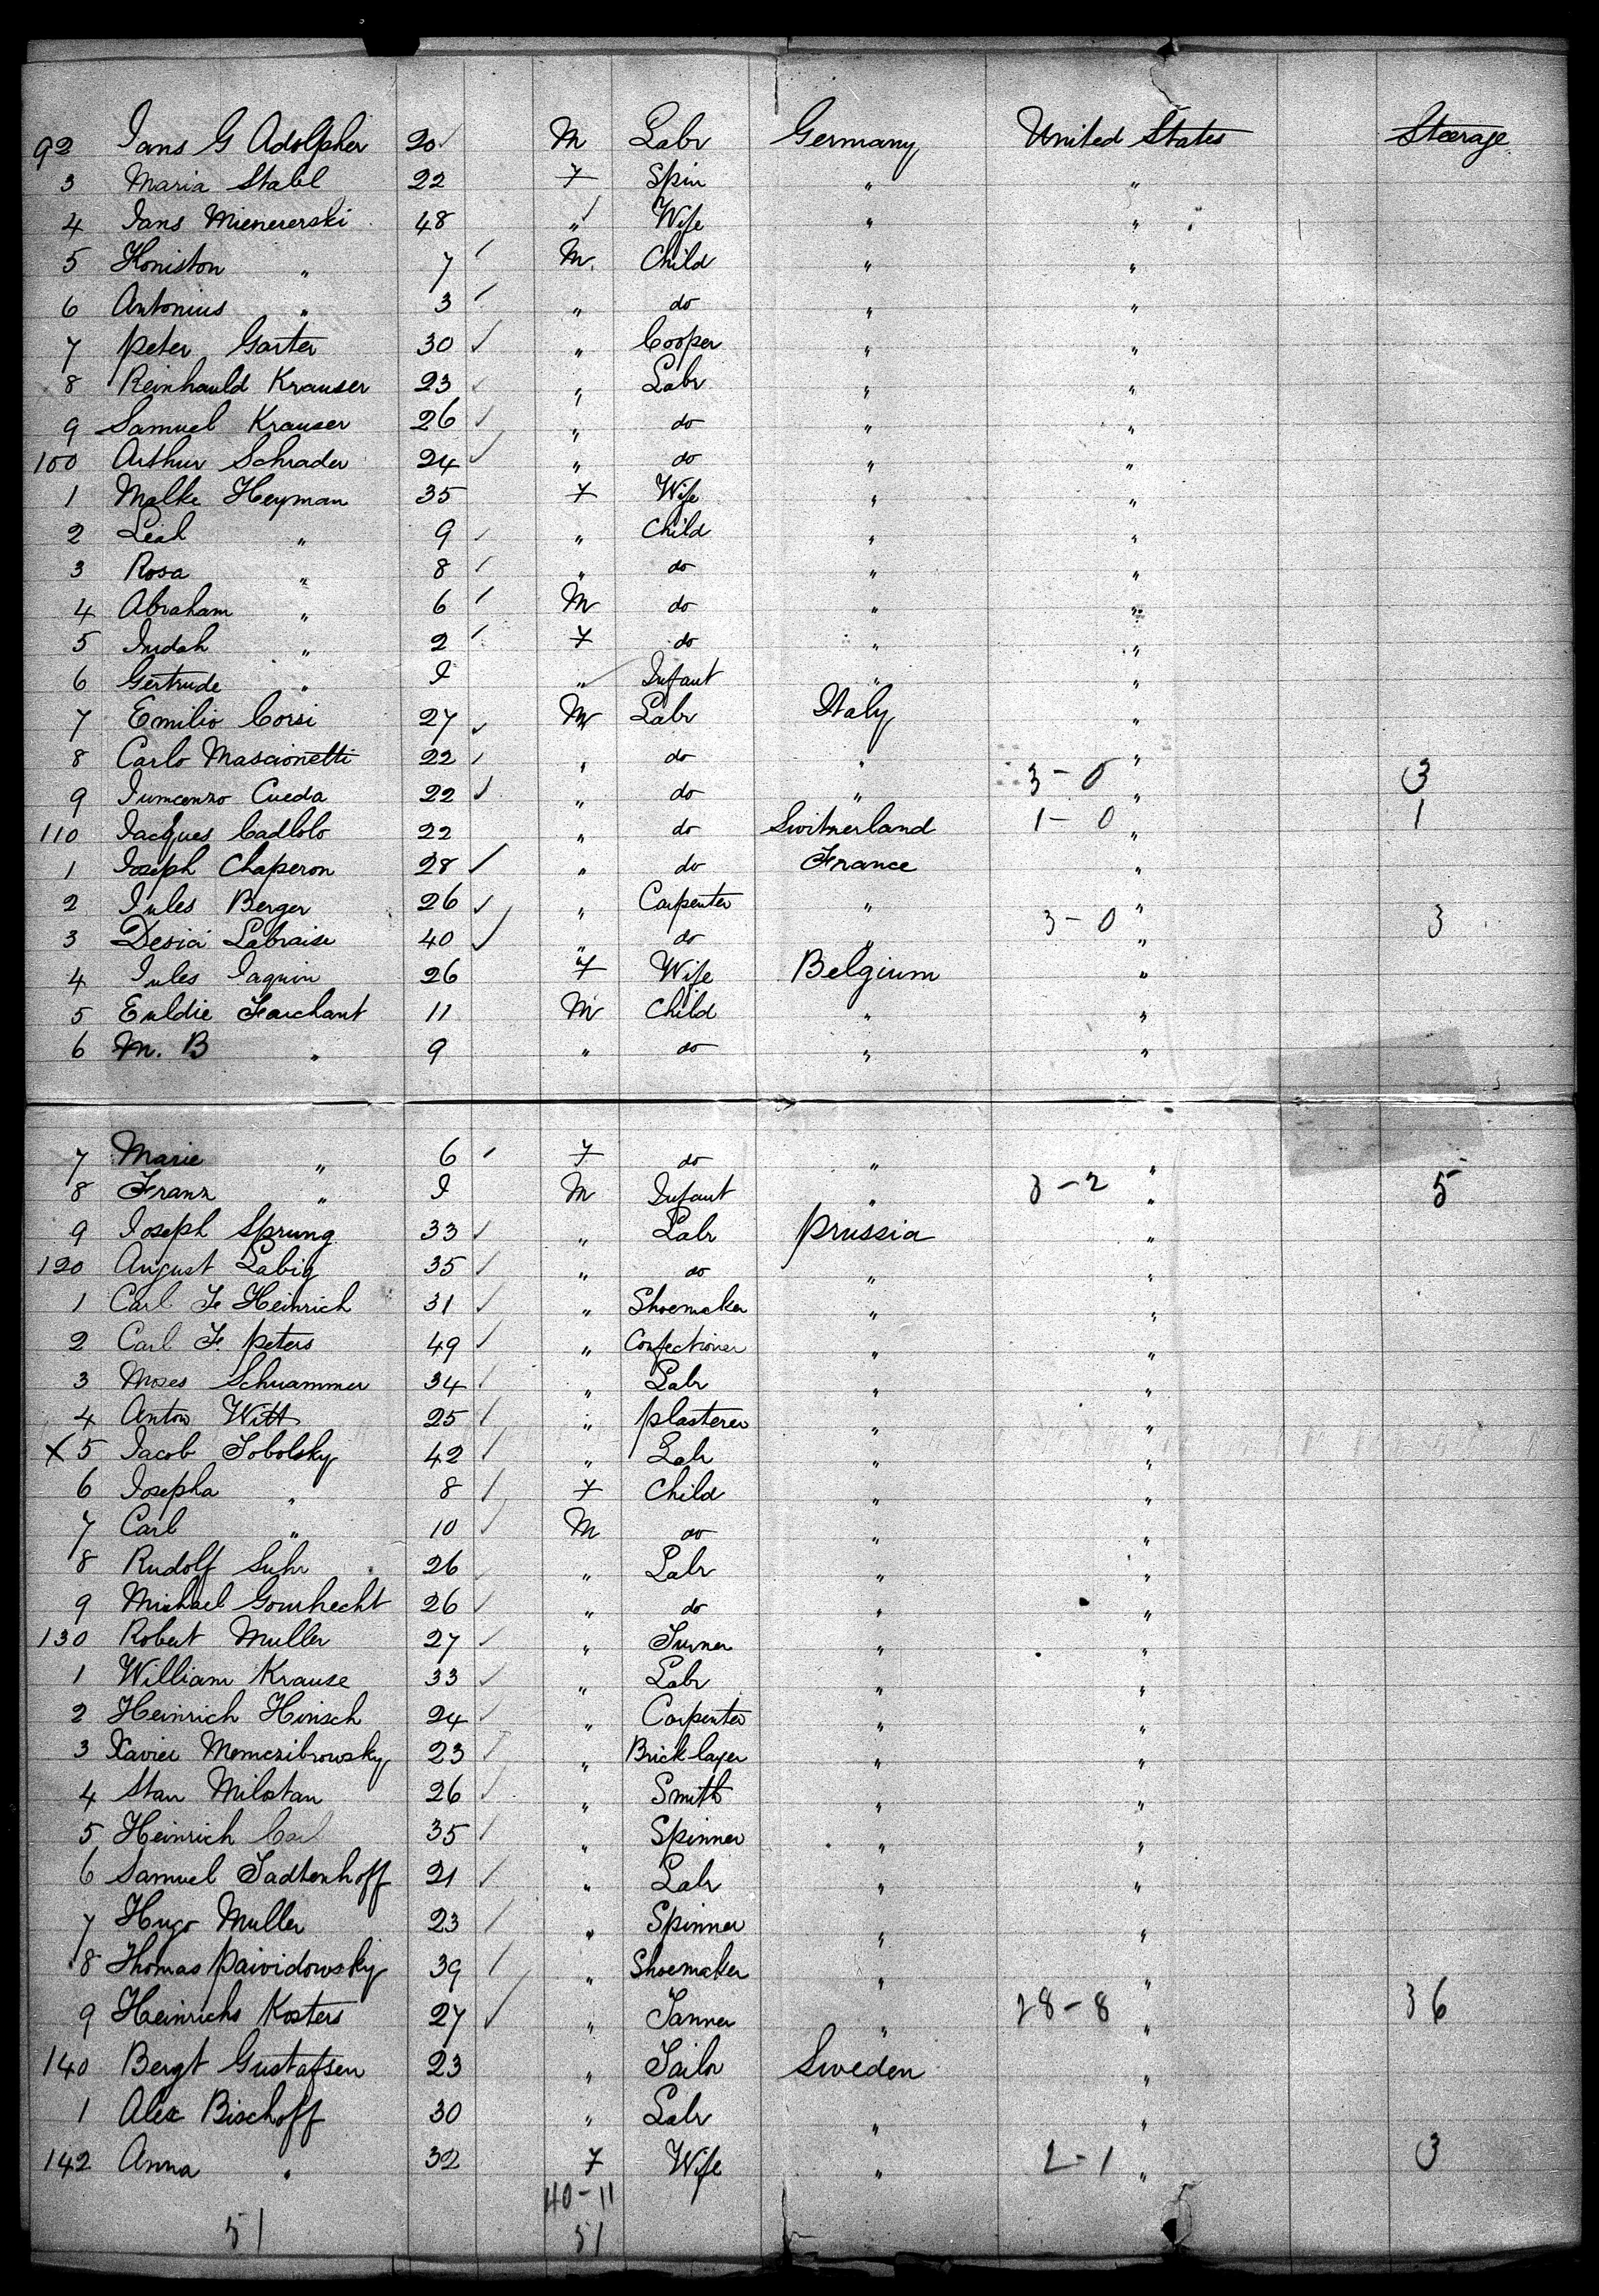 92 Jans G Adolpher 20 M Labr Germany United States Steerage
3 Maria Stabl 22 F Spin " "
4 Jans Mienererski 48 " Wife " "
5 Honiston " 7 M. Child " "
6 Antonius " 3 " do " "
7 Peter Garter 30 " Cooper " "
8 Reinhauld Krauser 23 " Labr " "
9 Samuel Krauser 26 " do " "
100 Arthur Schrader 24 " do " "
1 Malke Heyman 35 F Wife " "
2 Leah " 9 " Child " "
3 Rosa " 8 " do " "
4 Abraham " 6 M do " "
5 Judah " 2 F do " "
6 Gertrude " I " Infant " "
7 Emilio Corsi 27 M Labr Italy "
8 Carlo Mascionetti 22 " do " "
9 Jumcenzo Cueda 22 " do " 3-0 " 3
110 Jacques Cadlolo 22 " do Switzerland 1-0 " 1
1 Joseph Chaperon 28 " do France "
2 Jules Berger 26 " Carpenter " "
3 Desia Labraise 40 " do " 3-0 " 3
4 Jules Jaquin 26 F Wife Belgium "
5 Euldie Farchant 11 M Child " "
6 M. B " 9 " do " "
7 Marie " 6 F do " "
8 Franz " I M Infant " 3-2 " 5
9 Joseph Sprung 33 " Labr Prussia "
120 August Labig 35 " do " "
1 Carl F Heinrich 31 " Shoemaker " "
2 Carl F. Peters 49 " Confectioner " "
3 Moses Schuammer 34 " Labr " "
4 Anton Witt 25 " Plasterer " "
X 5 Jacob Sobolsky 42 " Labr " "
6 Josepha " 8 F Child " "
7 Carl " 10 M do " "
8 Rudolf Suhr 26 " Labr " "
9 Michael Gourhecht 26 " do " "
130 Robert Muller 27 " Turner " "
1 William Krause 33 " Labr " "
2 Heinrich Hinsch 24 " Carpenter " "
3 Xavier Memczibrowsky 23 " Bricklayer " "
4 Stan Milostan 26 " Smith " "
5 Heinrich Carl 35 " Spinner " "
6 Samuel Sadtenhoff 21 " Labr " "
7 Hugo Muller 23 " Spinner " "
8 Thomas Paividowsky 39 " Shoemaker " "
9 Heinrichs Kosters 27 " Tanner " 28-8 " 36
140 Bergt Gustafsen 23 " Tailor Sweden "
1 Alex Bischoff 30 " Labr " "
142 Anna " 32 F Wife " 2-1 " 3
40-11
51 51